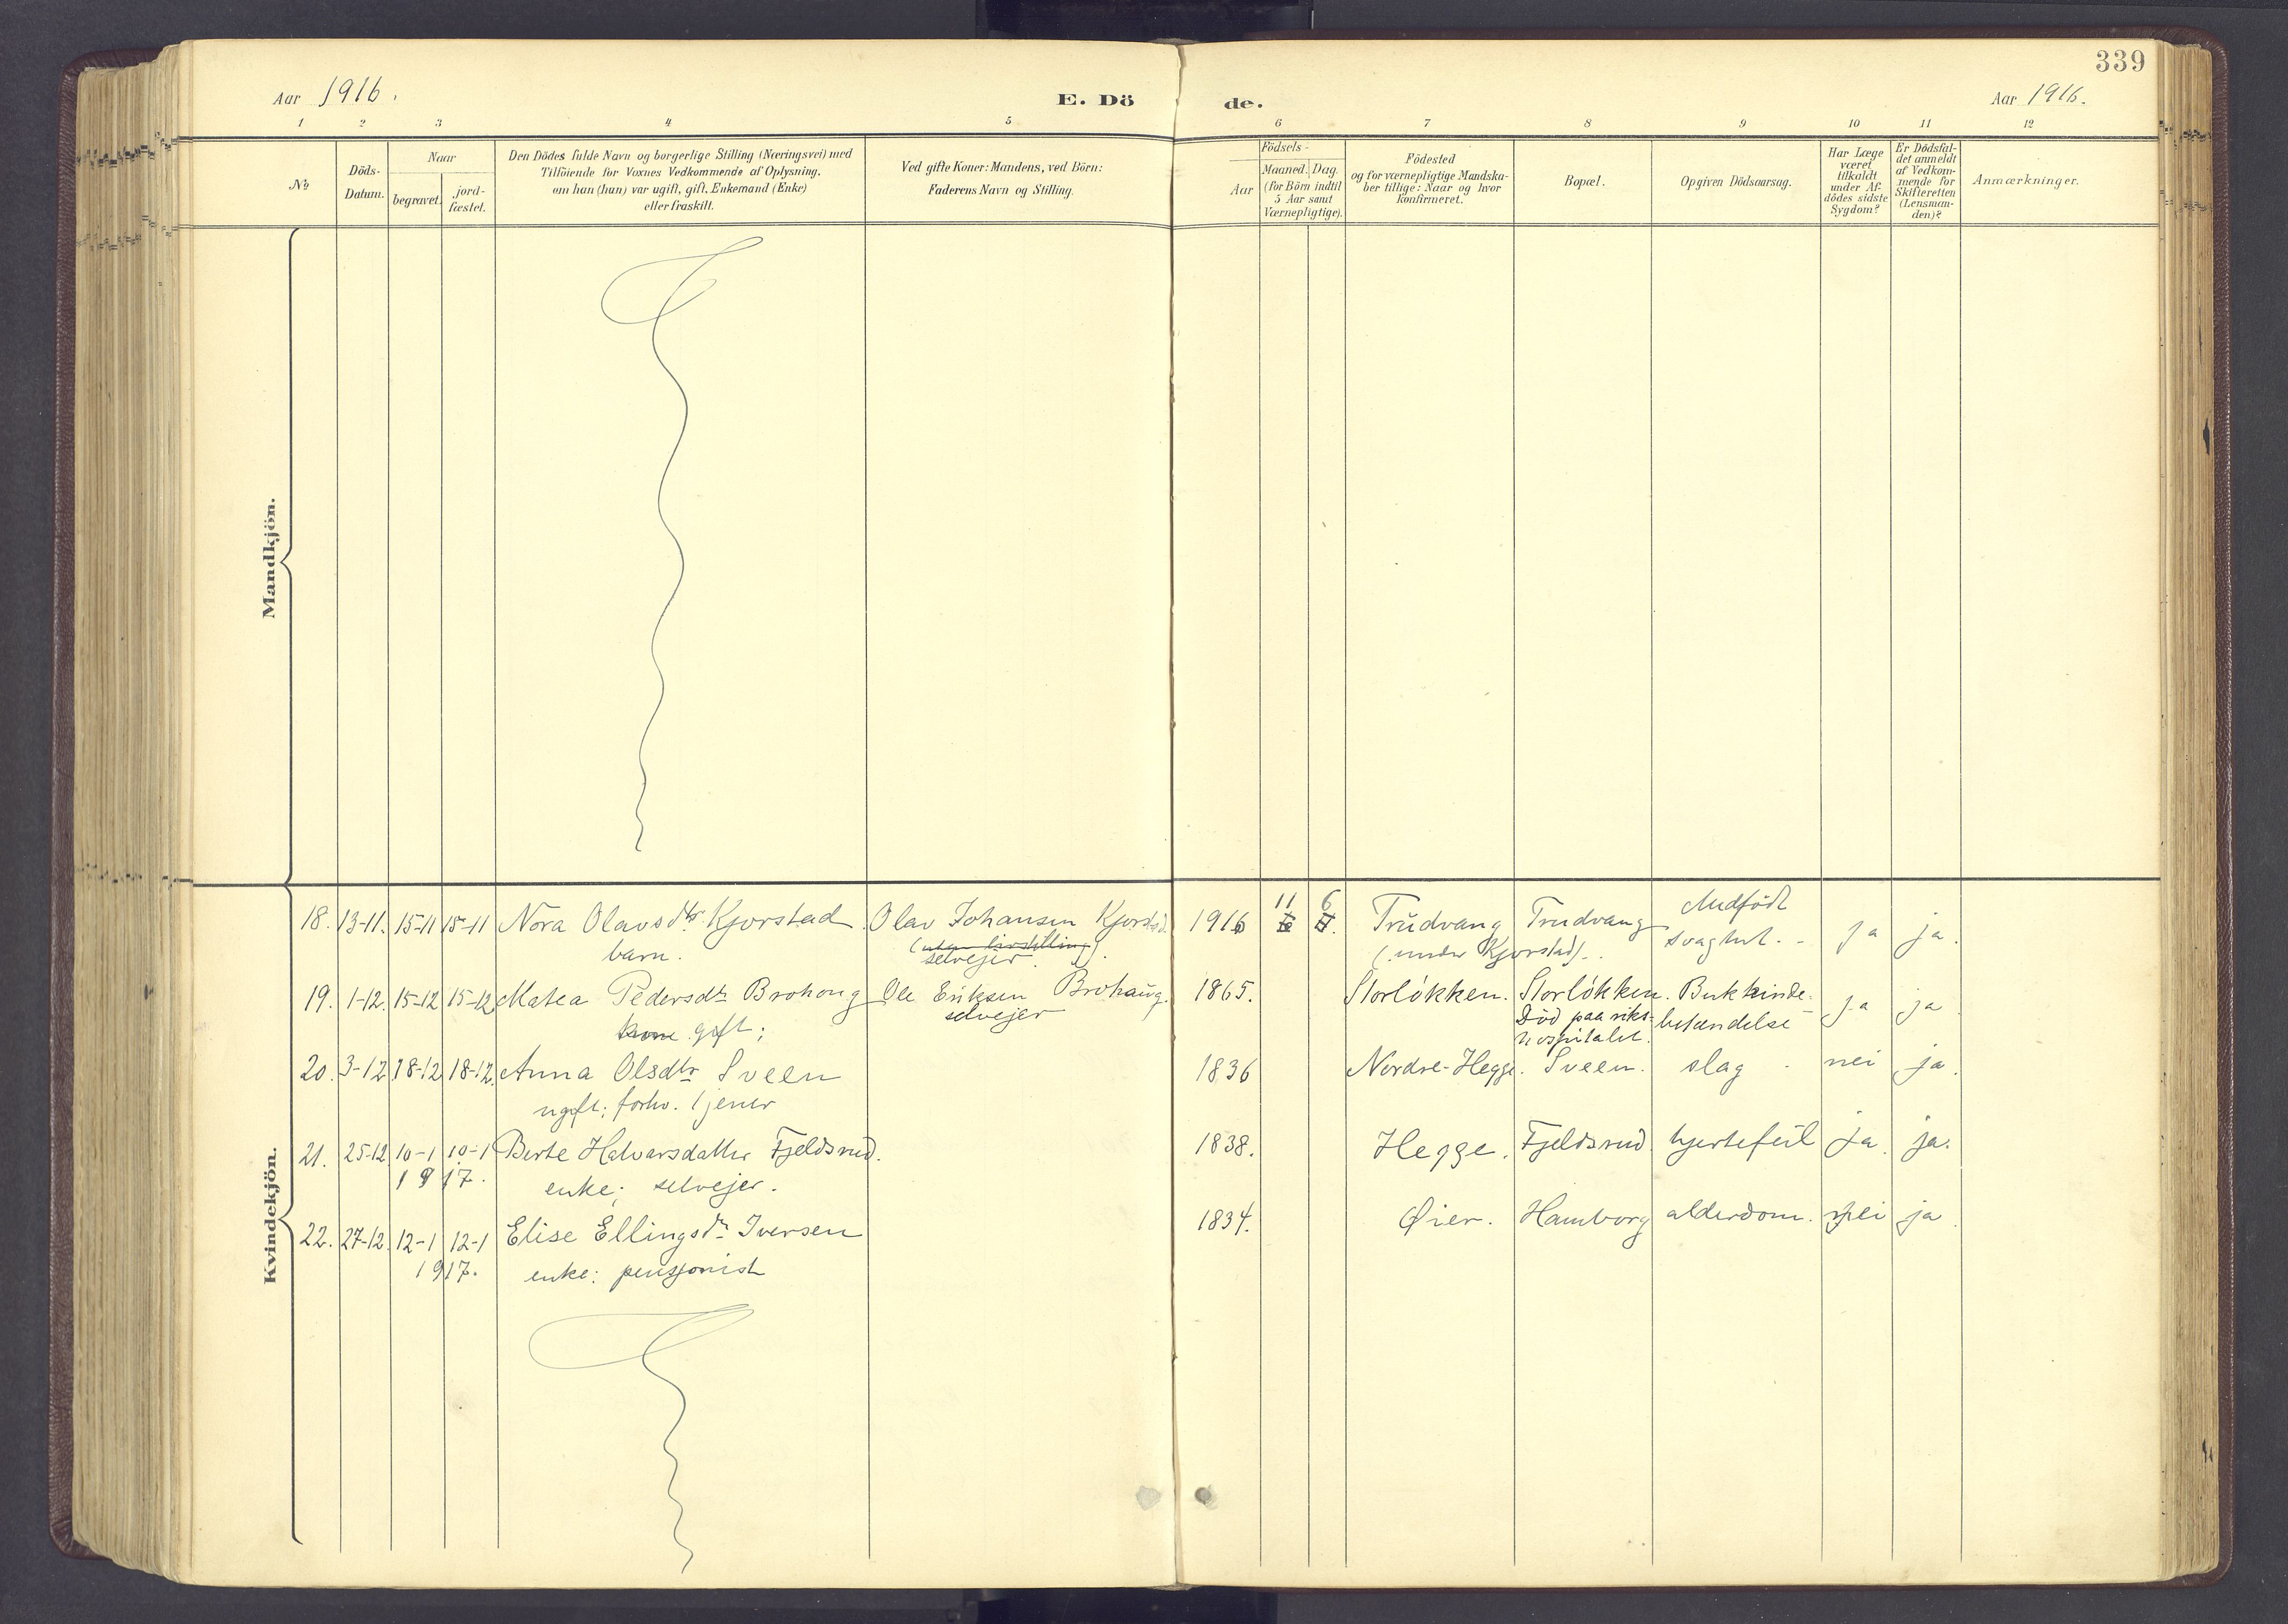 339
Aar 1916.
E. Dö
de.
Aar 1916.
1 2 3 4 5 6 7 8 9 10 11 12
No
Döds-
Datum.
Naar
begravet.
jord-
fæstet.
Den Dödes fulde Navn og borgerlige Stilling (Næringsvei) med
Tilföiende for Voxnes Vedkommende af Oplysning,
om han (hun) var ugift, gift, Enkemand (Enke)
eller fraskilt.
Ved gifte Koner: Mandens, ved Börn:
Faderens Navn og Stilling.
Födsels-
Aar
Maaned. Dag.
(for Börn indtil
5 Aar samt
Værnepligtige).
Födested
og for værnepligtige Mandska-
ber tillige: Naar og hvor
konfirmeret.
Bopæl.
Opgiven Dödsaarsag.
Har Læge
været
tilkaldt
under Af-
dödes sidste
Sygdom?
Er Dödsfal-
det anmeldt
af Vedkom-
mende for
Skifteretten
(Lensman-
den)?
Anmærkninger.
Mandkjön.
Kvindekjön.
18. 13-11. 15-11 15-11 Nora Olavsdtr Kjorstad Olav Johansen Kjorstad 1916 11 6 Trudvang Trudvang Medfödt
barn. (uten livsstilling). (under Kjorstad). svaghet. ja ja.
selvejer.
19. 1-12. 15-12 15-12 Matea Pedersdtr Brohoug Ole Eriksen Brohaug. 1865. Storlökken. Storlökken. Bukhinde-
kone gift; selvejer Död paa riks- betændelse ja ja
hospitalet.
20. 3-12 18-12 18-12. Anna Olsdtr Sveen 1836 Nordre-Hegge. Sveen. slag nei ja.
ugift; forhv. tjener
21. 25-12 10-1 10-1 Berte Halvarsdatter Fjeldsrud. 1838. Hegge. Fjeldsrud hjertefeil ja. ja.
1917. enke; selvejer.
22. 27-12 12-1 12-1 Elise Ellingsdtr Iversen 1834. Øier. Hamborg alderdom. nei ja.
1917. enke: pensjonist